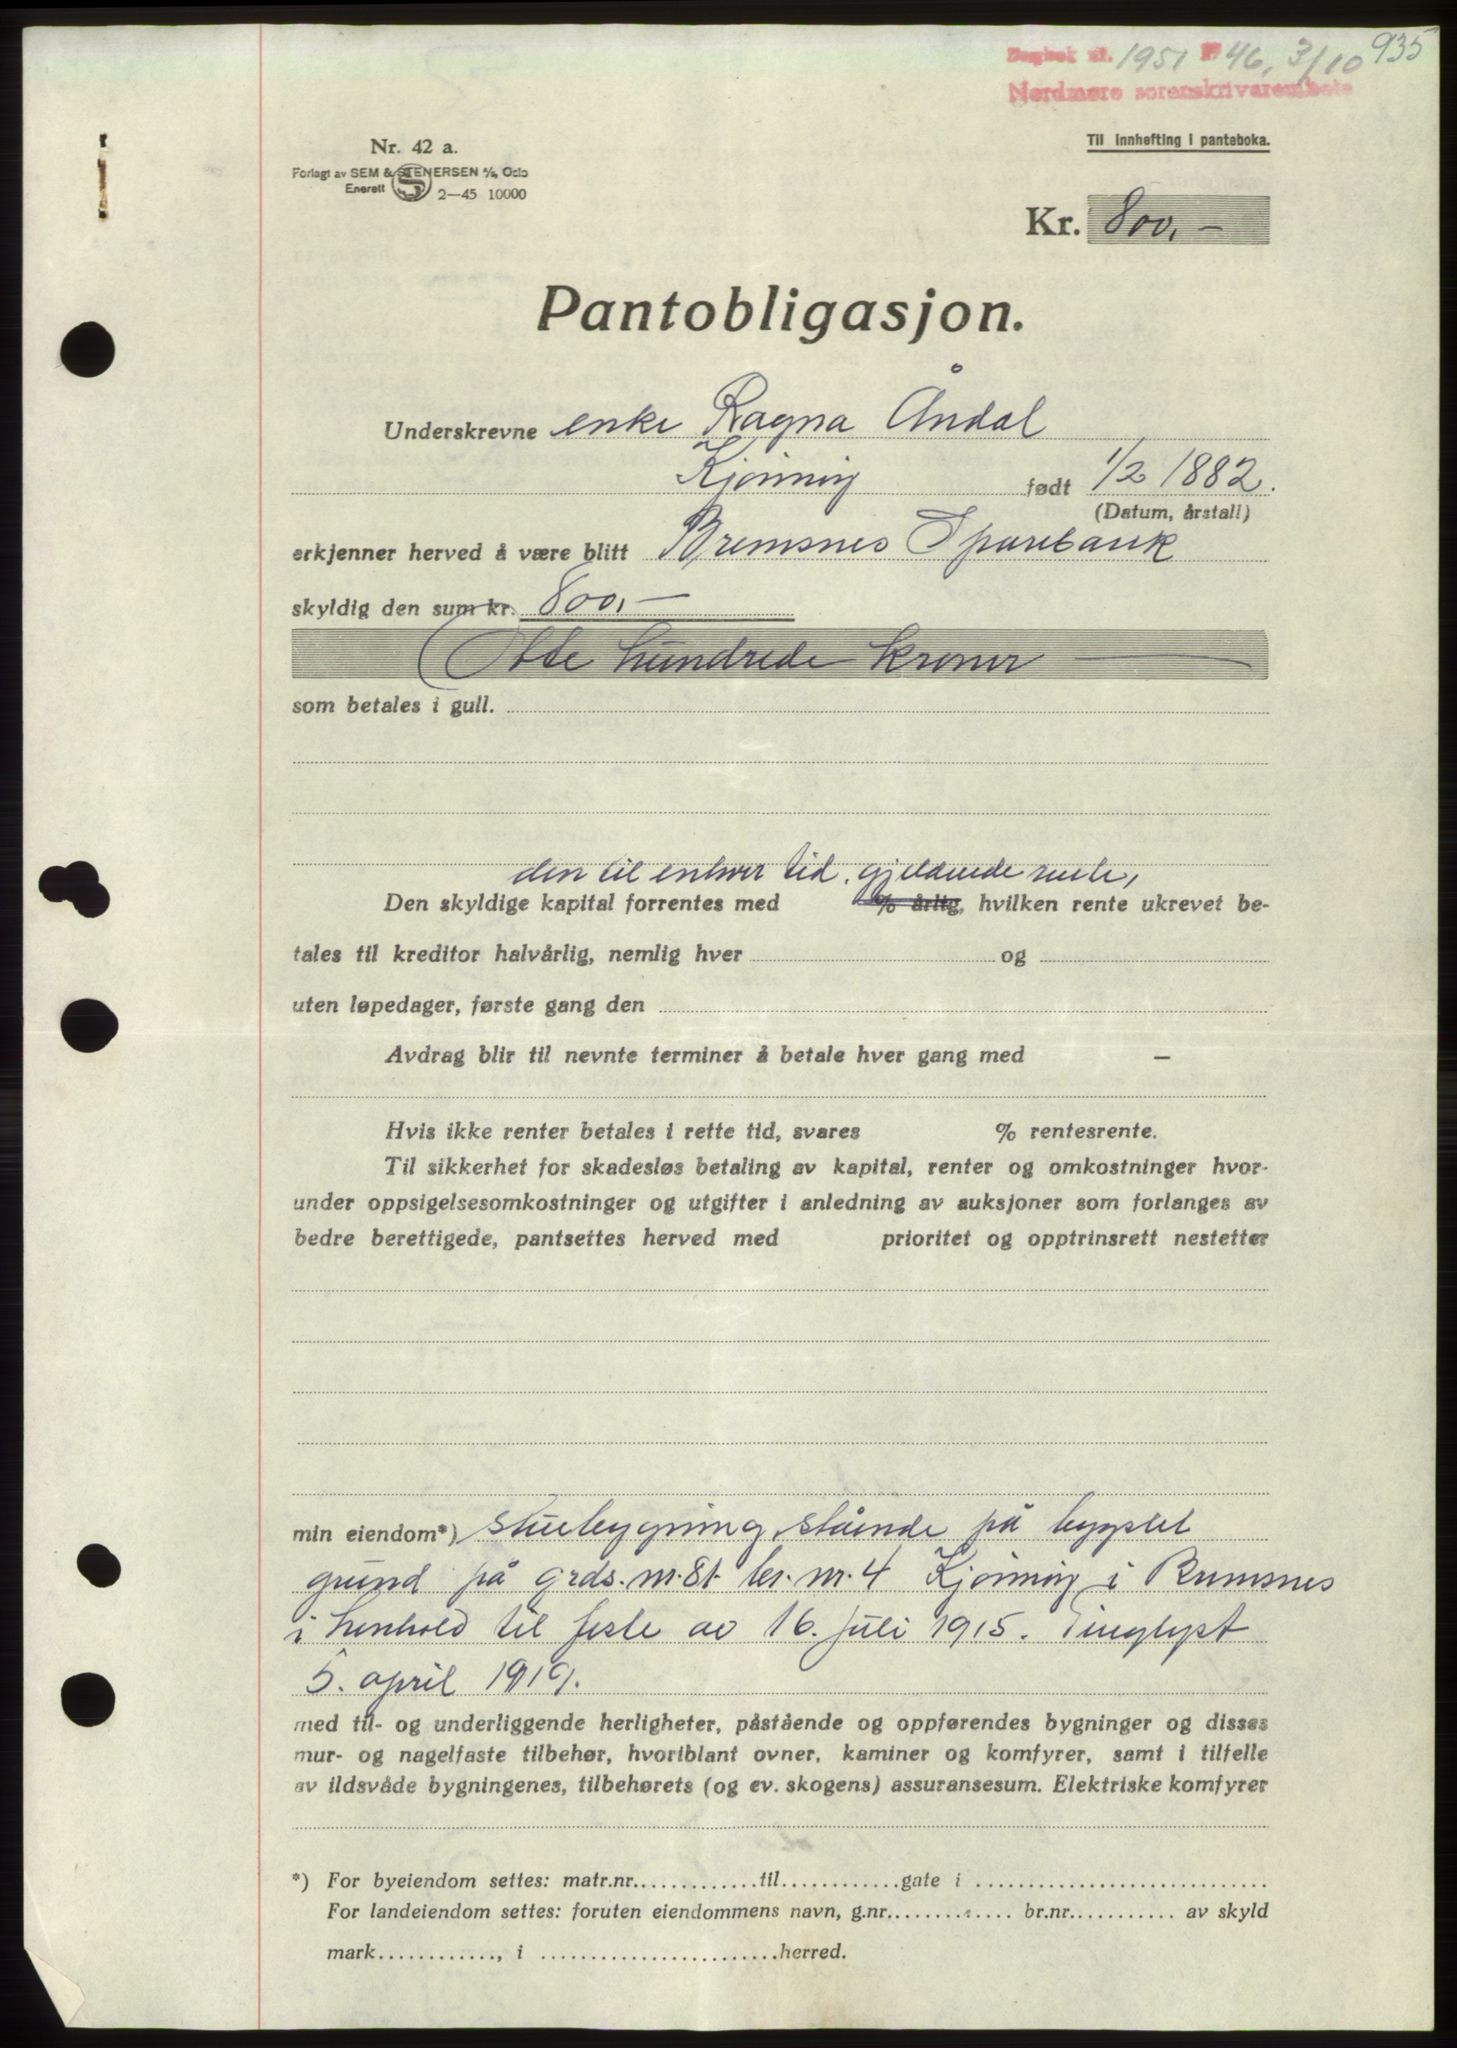 Dagbok nr. 1951 19 46, 3/10 935
Nordmøre sorenskrivarembete
Nr. 42 a.
Til innhefting i panteboka.
Forlagt av SEM & STENERSEN A/S, Oslo
Enerett 2—45 10000
Kr. 800,-
Pantobligasjon.
Underskrevne enke Ragna Åndal
Kjønnøy født 1/2 1882.
(Datum, årstall)
erkjenner herved å være blitt Bremsnes Sparebank
skyldig den sum kr. 800,-
Otte hundrede kroner
som betales i gull.
den til enhver tid gjeldende rente,
Den skyldige kapital forrentes med % årlig, hvilken rente ukrevet be-
tales til kreditor halvårlig, nemlig hver og
uten løpedager, første gang den
Avdrag blir til nevnte terminer å betale hver gang med —
Hvis ikke renter betales i rette tid, svares % rentesrente.
Til sikkerhet for skadesløs betaling av kapital, renter og omkostninger hvor-
under oppsigelsesomkostninger og utgifter i anledning av auksjoner som forlanges av
bedre berettigede, pantsettes herved med prioritet og opptrinsrett nestetter
min eiendom*) stuebygning stående på bygslet
grund på grds. nr. 81 br. nr. 4 Kjønnøy i Bremsnes
i henhold til feste av 16. juli 1915. Tinglyst
5. april 1919.
med til- og underliggende herligheter, påstående og oppførendes bygninger og disses
mur- og nagelfaste tilbehør, hvoriblant ovner, kaminer og komfyrer, samt i tilfelle
av ildsvåde bygningenes, tilbehørets (og ev. skogens) assuransesum. Elektriske komfyrer
*) For byeiendom settes: matr.nr.............til............gate i ............................
For landeiendom settes: foruten eiendommens navn, g.nr............ br.nr........... av skyld
mark............, i .......................herred.